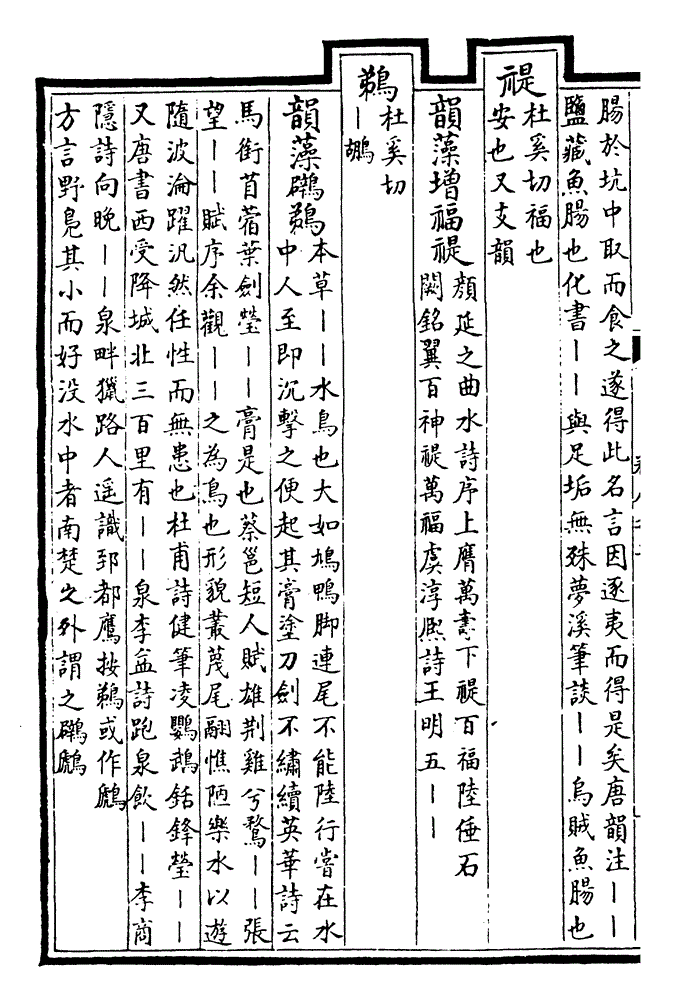 腸於坑中取而食之遂得此名言因逐夷而得是矣唐韻注丨丨
鹽藏魚腸也化書丨丨與足垢無殊夢溪筆談丨丨烏賊魚腸也
禔
杜奚切福也
安也又支韻
韻藻增福禔
顔延之曲水詩序上膺萬壽下禔百福陸倕石
闕銘翼百神禔萬福虞淳熙詩王明五丨丨
鵜
杜奚切
丨鶘
韻藻鷿鵜
本草丨丨水鳥也大如鳩鴨脚連尾不能陸行嘗在水
中人至即沉擊之便起其膏塗刀劍不繡續英華詩云
馬銜苜蓿葉劍瑩丨丨膏是也蔡邕短人賦雄荆雞兮鶩丨丨張
望丨丨賦序余觀丨丨之為鳥也形貌叢蔑尾翮憔陋樂水以遊
隨波淪躍汎然任性而無患也杜甫詩健筆凌鸚鵡銛鋒瑩丨丨
又唐書西受降城北三百里有丨丨泉李益詩跑泉飲丨丨李商
隱詩向晚丨丨泉畔獵路人遥識郅都鷹按鵜或作鷉
方言野鳧其小而好没水中者南楚之外謂之鷿鷉